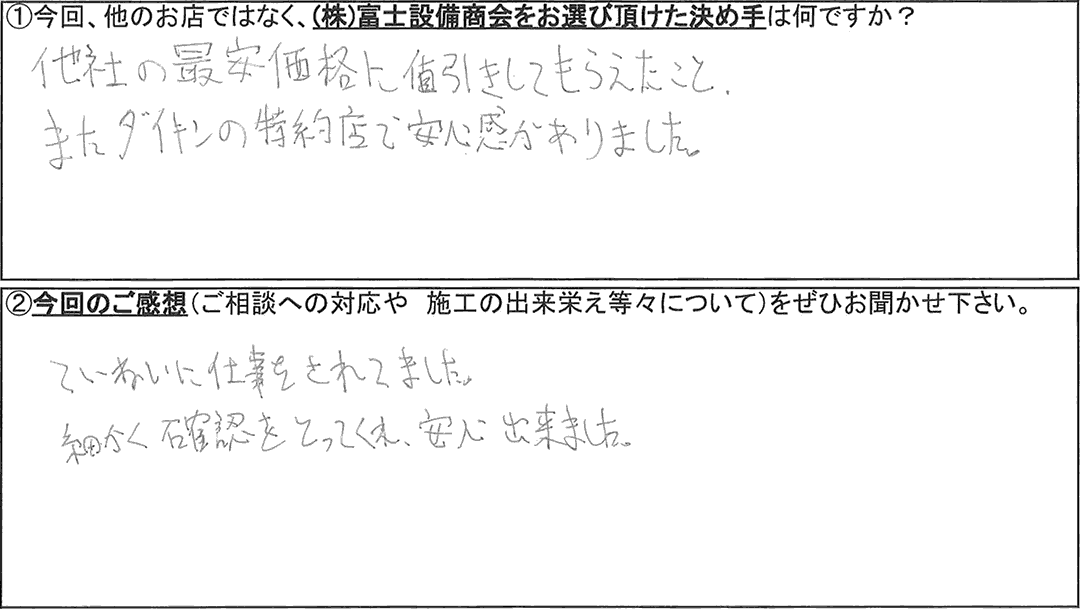 ①今回、他のお店ではなく、(株)富士設備商会をお選び頂けた決め手は何ですか？
他社の最安価格に値引きしてもらえたこと、
またダイキンの特約店で安心感がありました。
②今回のご感想(ご相談への対応や　施工の出来栄え等々について)をぜひお聞かせ下さい。
ていねいに仕事をされてました。
細かく確認をとってくれ、安心出来ました。